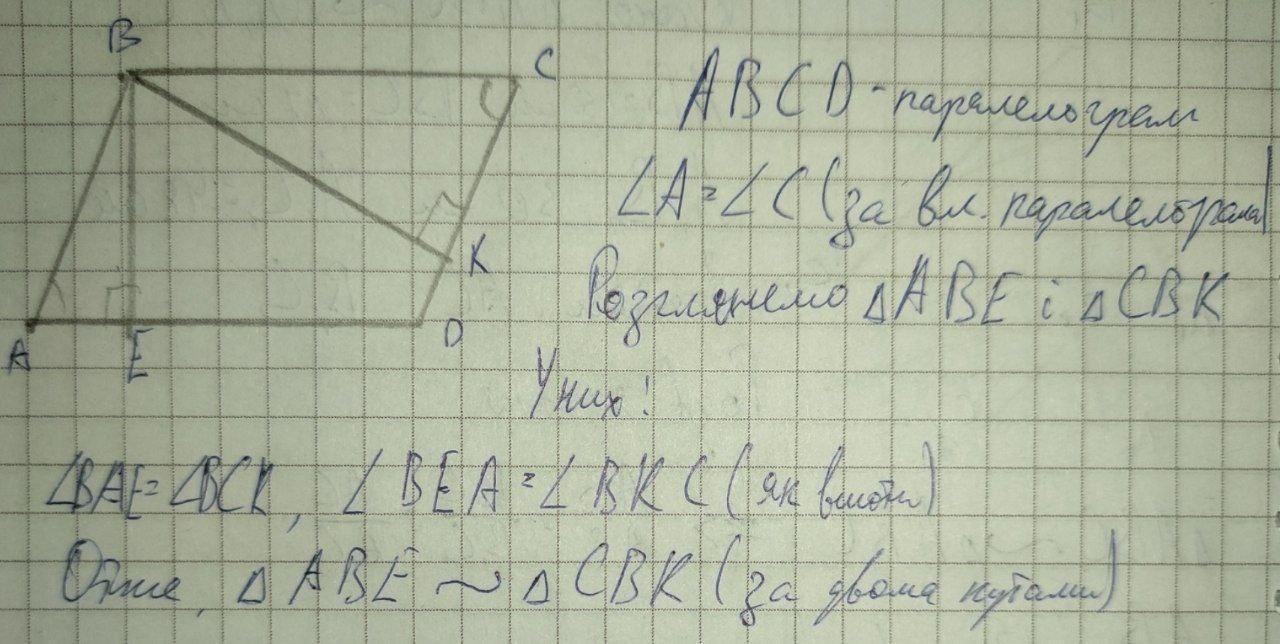 B
C
ABCD - паралелограм
∠A = ∠C (за вл. паралелограма)
K
Розглянемо △ABE і △CBK
A
E
D
У них:
∠BAE = ∠BCK, ∠BEA = ∠BKC (як висоти)
Отже, △ABE ~ △CBK (за двома кутами)